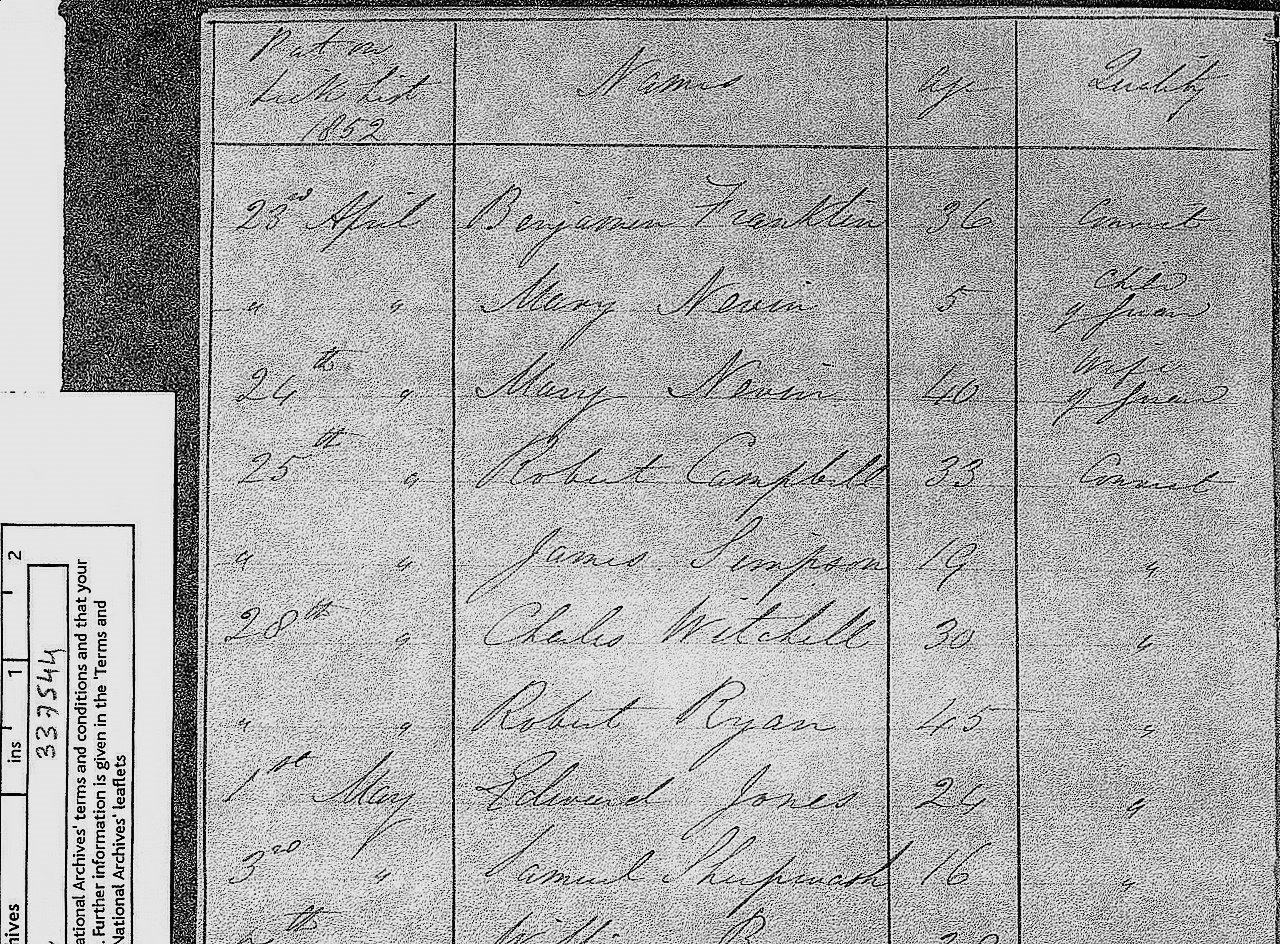 Put on Sick List 1852 Names Age Quality
23rd April Benjamin Franklin 36 Convict
" " Mary Nevin 5 Child of Guard
24th " Mary Nevin 40 Wife of Guard
25th " Robert Campbell 33 Convict
" " James Simpson 19 "
28th " Charles Witchell 30 "
" " Robert Ryan 45 "
1st May Edward Jones 24 "
3rd " Samuel 16 "
ins 1 2
337544
ational Archives' terms and conditions and that your
. Further information is given in the 'Terms and
National Archives' leaflets
hives